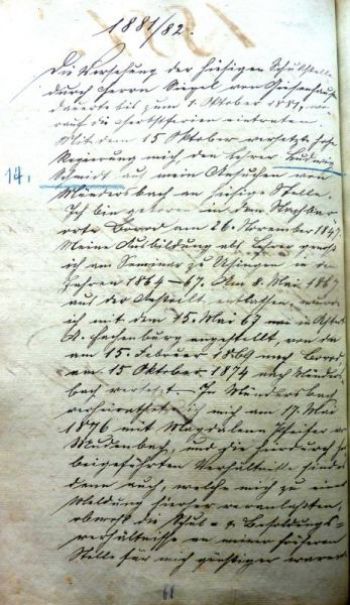 1881/82.
Die Versehung der hiesigen Schulstelle
durch Herrn Riegel von
dauerte bis zum 1. Oktober 1881, wo-
rauf die Herbstferien eintraten.
Mit dem 15 Oktober versetzte hohe
Regierung mich, den Lehrer Ludwig
14.
Schmidt auf mein Ansuchen von
Mündersbach an hiesige Stelle.
Ich bin geboren in dem Nachbar
orte Borod am 26. November 1847.
Meine Ausbildung als Lehrer
ich am Seminar zu Usingen in den
Jahren 1864-67. Am 8. Mai 1867
aus der Anstalt entlassen, wurde
ich mit dem 15. Mai 67 in
angestellt, von da
am 15. Februar 1869 nach Borod
am 15 Oktober 1874 nach Münders-
bach versetzt. In Mündersbach
verheirathete ich mich am 17. Mai
1876 mit Magdalena Schneider
und die hierdurch
beigeführten Verhältnisse
denn auch, welche mich zu einer
Meldung hierher veranlaßten,
obwohl die Schul- & Besoldungs-
verhältnisse an meiner früheren
Stelle für mich günstiger waren